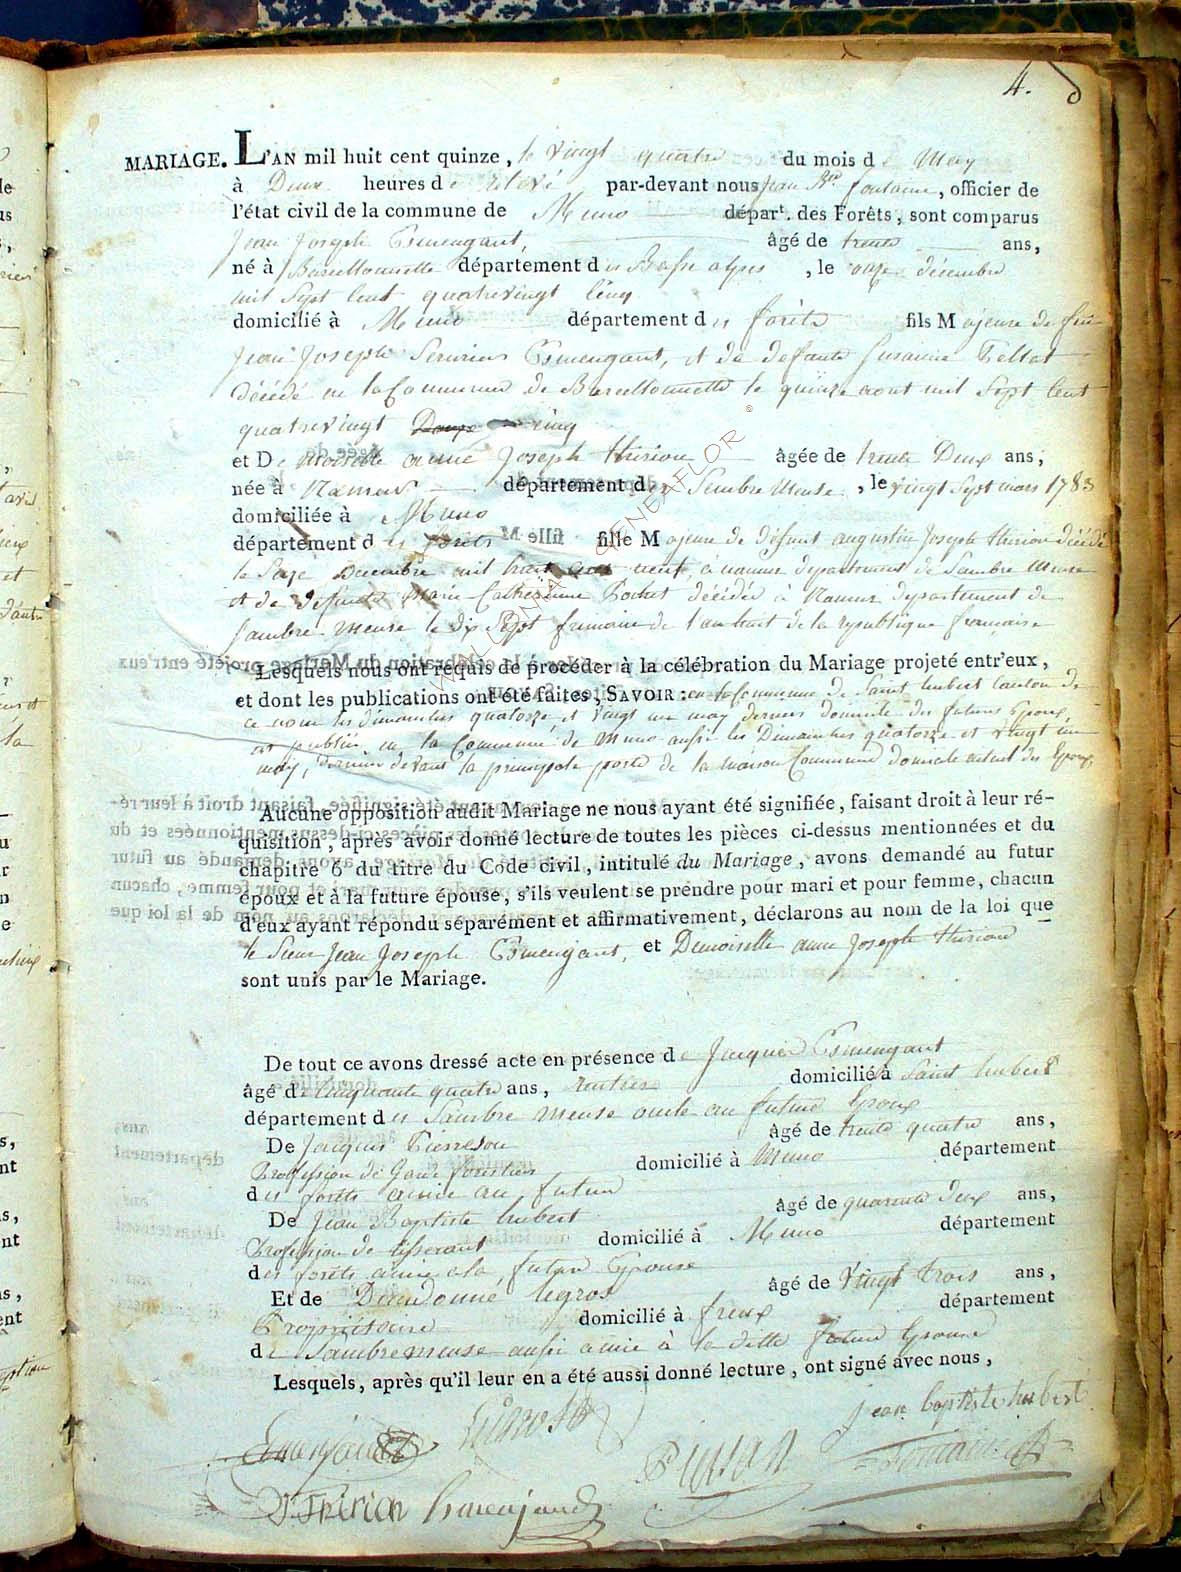 4.
MARIAGE. L'AN mil huit cent quinze, le vingt quatre du mois de May
à Deux heures de relevé par-devant nous Jean Bte fontaine, officier de
l'état civil de la commune de Muno départ. des Forêts, sont comparus
Jean Joseph Esmengant, âgé de trente ans,
né à Barcellonnette département des Basse alpes, le onze décembre
mil Sept Cent quatrevingt Cinq
domicilié à Muno département des forêts fils Majeure de feu
Jean Joseph Esmengant, et de defunte Susanne
décédé en la Commune de Barcellonnette le quinze aout mil Sept Cent
quatrevingt cinq
et Demoiselle anne Joseph thirion âgée de trente Deux ans,
née à Namur département de Sembre Meuse, le vingt Sept mars 1783
domiciliée à Muno
département des forêts fille Majeure de défunt augustin Joseph thirion décédé
le Seze Décembre mil huit cent neuf, à namur département de Sambre Meuse
et de defunte Marie Catherinne décédée à Namur département de
Sambre-Meuse le dix Sept frimaire de l'an huit de la republique francaise
Lesquels nous ont requis de procéder à la célébration du Mariage projeté entr'eux,
et dont les publications ont été faites, SAVOIR : en la Commune de Saint hubert Canton de
ce nom les dimanches quatorze et vingt un may dernier domicile des futurs Epoux,
et publiée en la Commune de Muno aussi les Dimanches quatorze et vingt un
may, dernier devant la principale porte de la maison Commune domicile actuel des Epoux,
Aucune opposition audit Mariage ne nous ayant été signifiée, faisant droit à leur ré-
quisition, après avoir donné lecture de toutes les pièces ci-dessus mentionnées et du
chapitre 6 du titre du Code civil, intitulé du Mariage, avons demandé au futur
époux et à la future épouse, s'ils veulent se prendre pour mari et pour femme, chacun
d'eux ayant répondu séparément et affirmativement, déclarons au nom de la loi que
le Sieur Jean Joseph Esmengant, et Demoiselle anne Joseph thirion
sont unis par le Mariage.
De tout ce avons dressé acte en présence de Jacques Esmengant
âgé de cinquante quatre ans, rentier domicilié à Saint hubert
département de Sambre meuse oncle au futur Epoux
De Jacques âgé de trente quatre ans,
Profession de Garde forestier domicilié à Muno département
des forêts amie au futur
De Jean Baptiste hubert âgé de quarante deux ans,
Profession de tisserant domicilié à Muno département
des forêts amie a la future Epouse
Et de Dieudonné legros âgé de vingt trois ans,
Propriétaire domicilié à freux département
de Sambremeuse aussi amie à la ditte future Epouse
Lesquels, après qu'il leur en a été aussi donné lecture, ont signé avec nous,
jean baptiste hubert
fontaine
thirion
WALLONIA GENEAFLOR ©